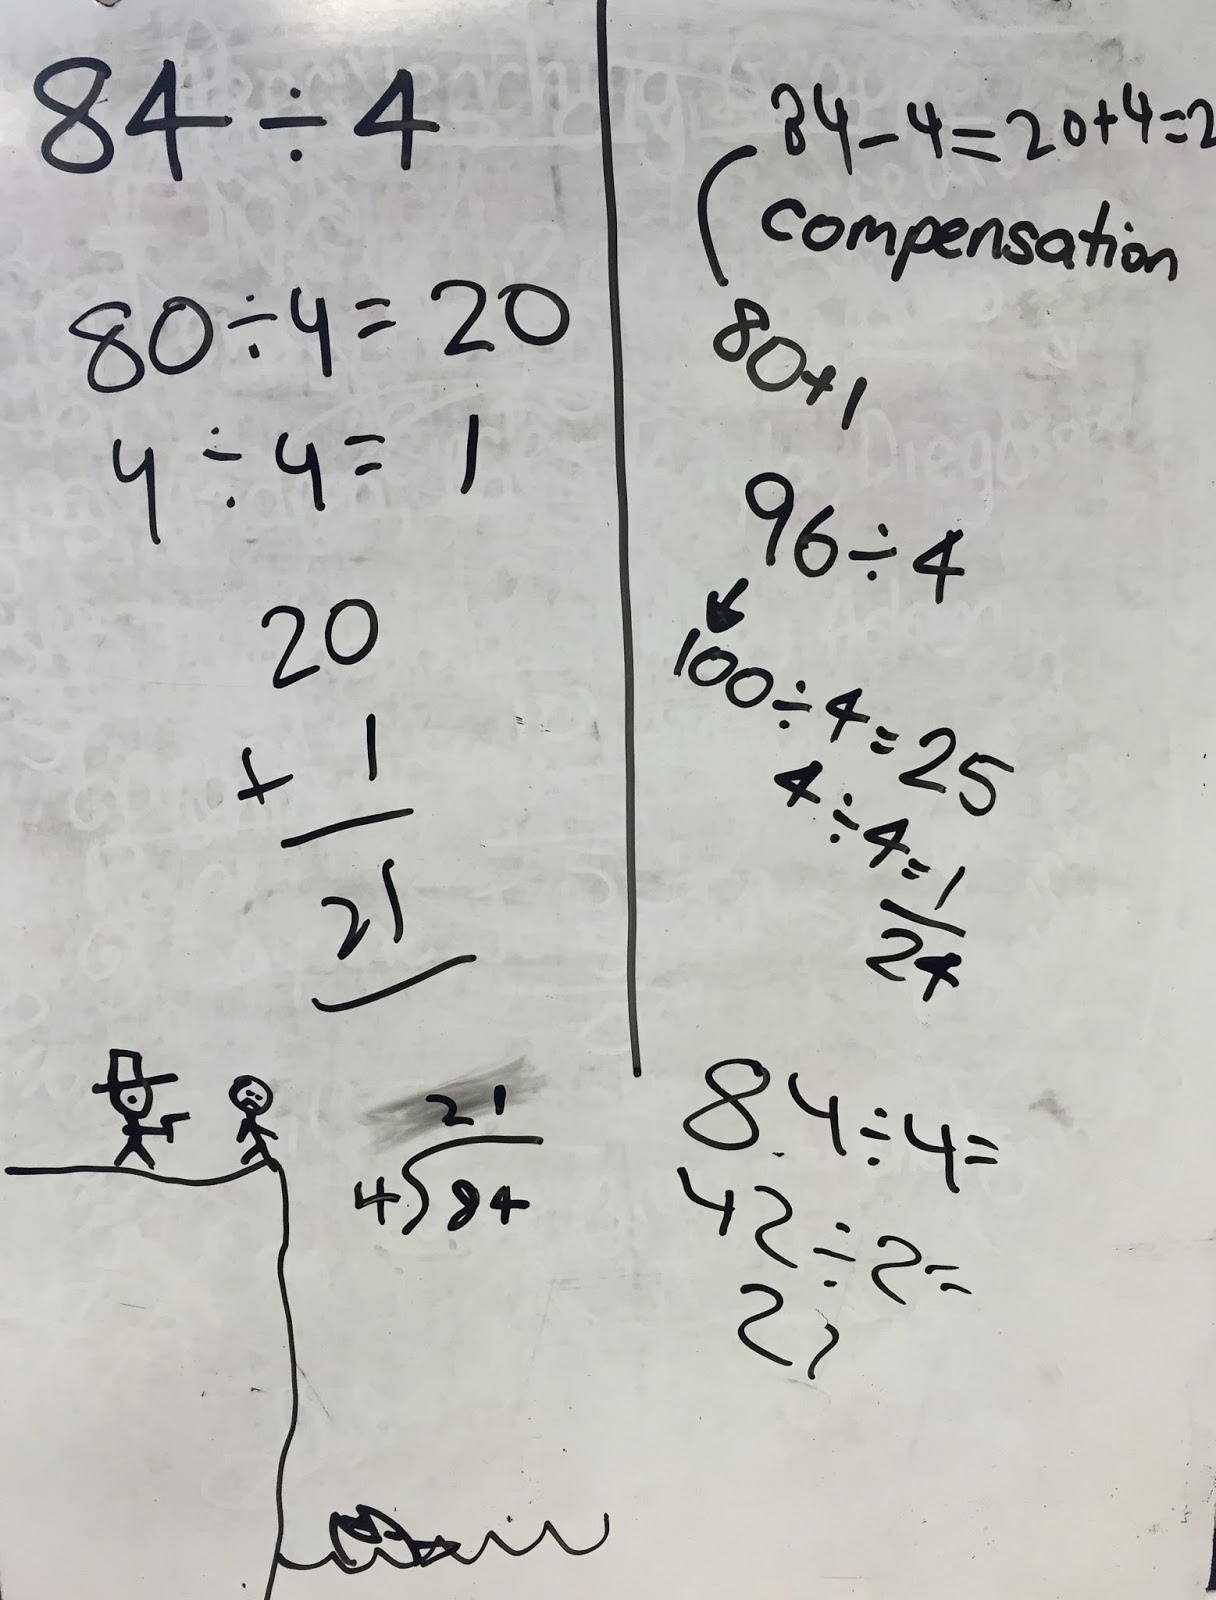 84 ÷ 4
80 ÷ 4 = 20
4 ÷ 4 = 1
20
+ 1
21
21
4)84
84 - 4 = 20 + 4 = 2
compensation
80 + 1
96 ÷ 4
100 ÷ 4 = 25
4 ÷ 4 = 1
24
84 ÷ 4 =
42 ÷ 2 =
21